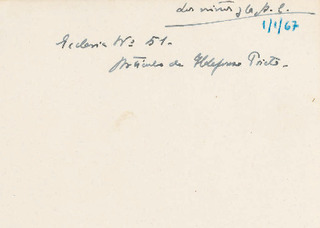 los niños y la A. C.
1/1/67
Ecclesia Nº 51.-
Artículo de Ildefonso Prieto.-